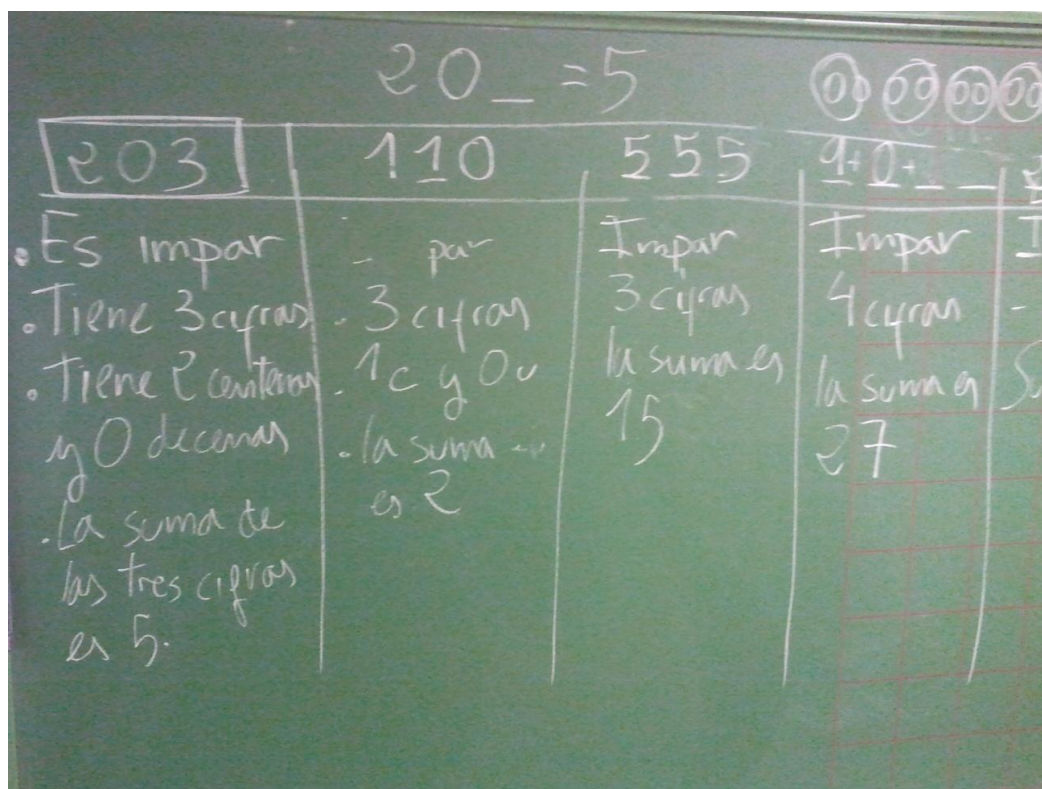 20_ = 5
00 00 00 00
203
• Es impar
• Tiene 3 cifras
• Tiene 2 centenas
y 0 decenas
. La suma de
las tres cifras
es 5.
110
- par
. 3 cifras
. 1c y 0u
. la suma
es 2
555
Impar
3 cifras
la suma es
15
9+0+_ _
Impar
4 cifras
la suma es
27
I
-
Su